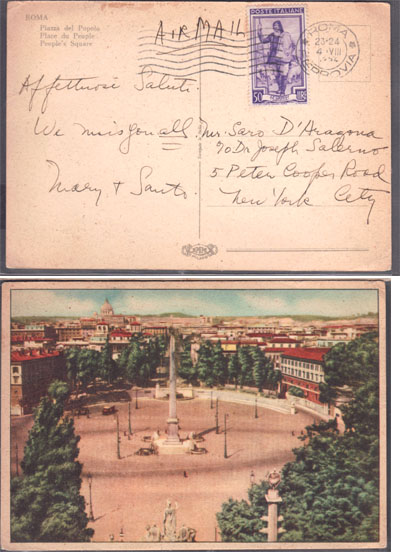 ROMA
Piazza del Popolo
Place du Peuple
People's Square
AIR MAIL
POSTE ITALIANE
50 LIRE
ROMA
23-24
4·VIII
FERROVIA
Affettuosi Saluti.
We miss you all
Mary + Santo.
Mr. Saro D'Aragona
c/o Dr Joseph Salerno
5 Peter Cooper Road
New York City